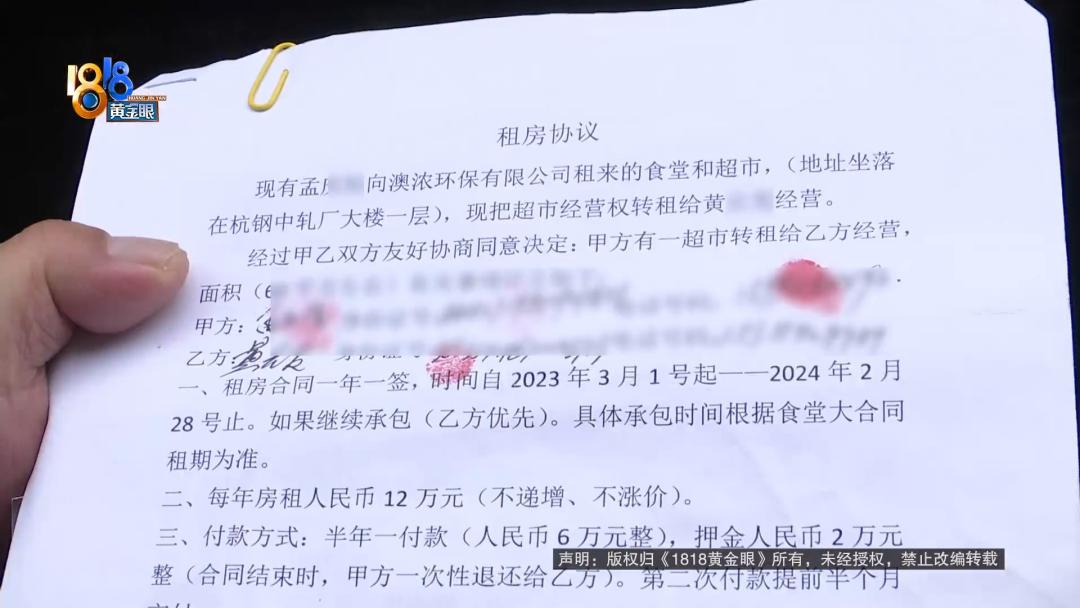 1818
HUANG JIN YAN
黄金眼
租房协议
现有孟 向澳浓环保有限公司租来的食堂和超市，（地址坐落
在杭钢中轧厂大楼一层），现把超市经营权转租给黄 经营。
经过甲乙双方友好协商同意决定：甲方有一超市转租给乙方经营，
面积（6
甲方：
乙方：黄
一、租房合同一年一签，时间自 2023 年 3 月 1 号起——2024 年 2 月
28 号止。如果继续承包（乙方优先）。具体承包时间根据食堂大合同
租期为准。
二、每年房租人民币 12 万元（不递增、不涨价）。
三、付款方式：半年一付款（人民币 6 万元整），押金人民币 2 万元
整（合同结束时，甲方一次性退还给乙方）。第二次付款提前半个月
声明：版权归《1818黄金眼》所有，未经授权，禁止改编转载